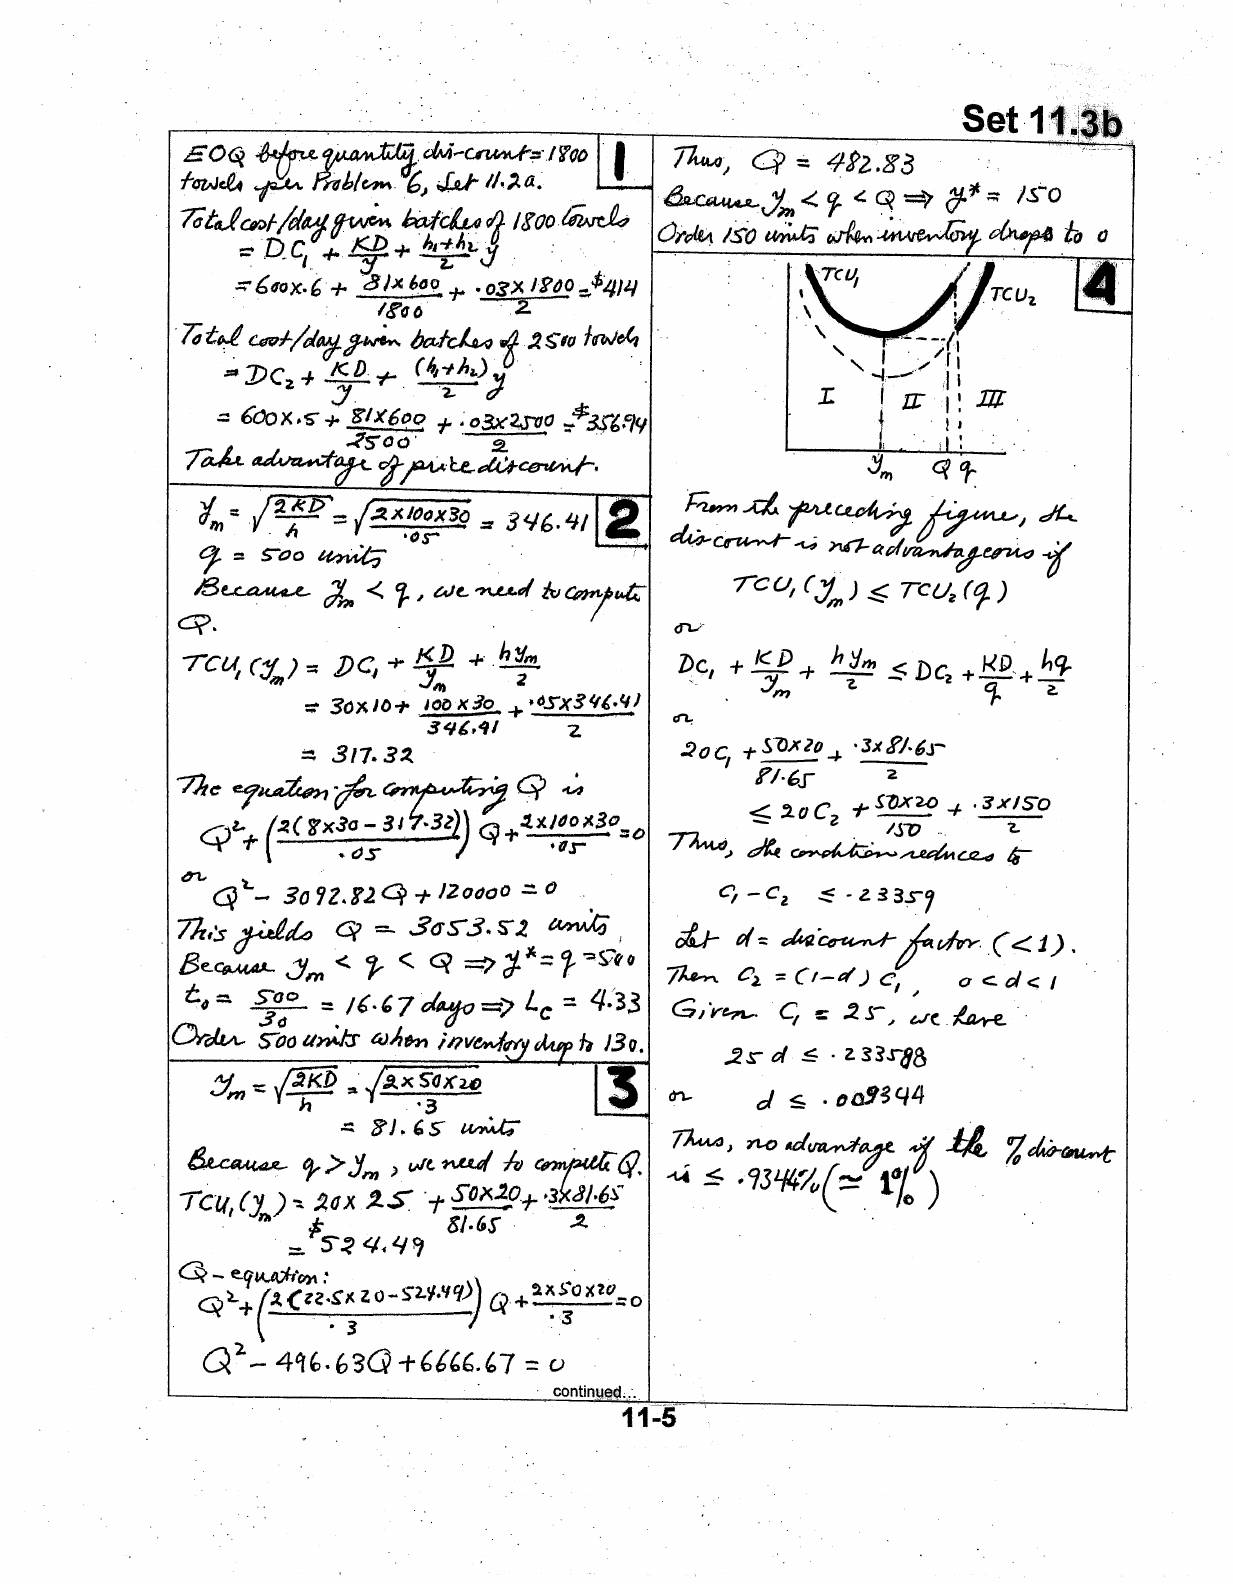 Set 11.3b
1
EOQ before quantity dis-count = 1800
towels per Problem 6, Set 11.2a.
Total cost/day given batches of 1800 towels
= DC₁ + KD/y + (h₁+h₂)/2 y
= 600x.6 + 81x600/1800 + .03x1800/2 = $414
Total cost/day given batches of 2500 towels
= DC₂ + KD/y + (h₁+h₂)/2 y
= 600x.5 + 81x600/2500 + .03x2500/2 = $356.94
Take advantage of price discount.
2
yₘ = √(2KD/h) = √(2x100x30/.05) = 346.41
q = 500 units
Because yₘ < q, we need to compute
Q.
TCU₁(yₘ) = DC₁ + KD/yₘ + hyₘ/2
= 30x10 + 100x30/346.41 + .05x346.41/2
= 317.32
The equation for computing Q is
Q² + (2(8x30 - 317.32)/.05) Q + 2x100x30/.05 = 0
or
Q² - 3092.82Q + 120000 = 0
This yields Q = 3053.52 units
Because yₘ < q < Q ⇒ y* = q = 500
t₀ = 500/30 = 16.67 days ⇒ L_c = 4.33
Order 500 units when inventory drop to 130.
3
yₘ = √(2KD/h) = √(2x50x20/.3)
= 81.65 units
Because q > yₘ, we need to compute Q.
TCU₁(yₘ) = 20x25 + 50x20/81.65 + .3x81.65/2
= $524.49
Q-equation:
Q² + (2(22.5x20-524.49)/.3) Q + 2x50x20/.3 = 0
Q² - 496.63Q + 6666.67 = 0
continued...
Thus, Q = 482.83
Because yₘ < q < Q ⇒ y* = 150
Order 150 units when inventory drops to 0
4
TCU₁
TCU₂
I II III
yₘ Q q
From the preceding figure, the
dis-count is not advantageous if
TCU₁(yₘ) ≤ TCU₂(q)
or
DC₁ + KD/yₘ + hyₘ/2 ≤ DC₂ + KD/q + hq/2
or
20C₁ + 50x20/81.65 + .3x81.65/2
≤ 20C₂ + 50x20/150 + .3x150/2
Thus, the condition reduces to
C₁ - C₂ ≤ .23359
Let d = discount factor (<1).
Then C₂ = (1-d)C₁, 0<d<1
Given C₁ = 25, we have
25d ≤ .233588
or d ≤ .009344
Thus, no advantage if the % discount
is ≤ .9344% (≃ 1%)
11-5